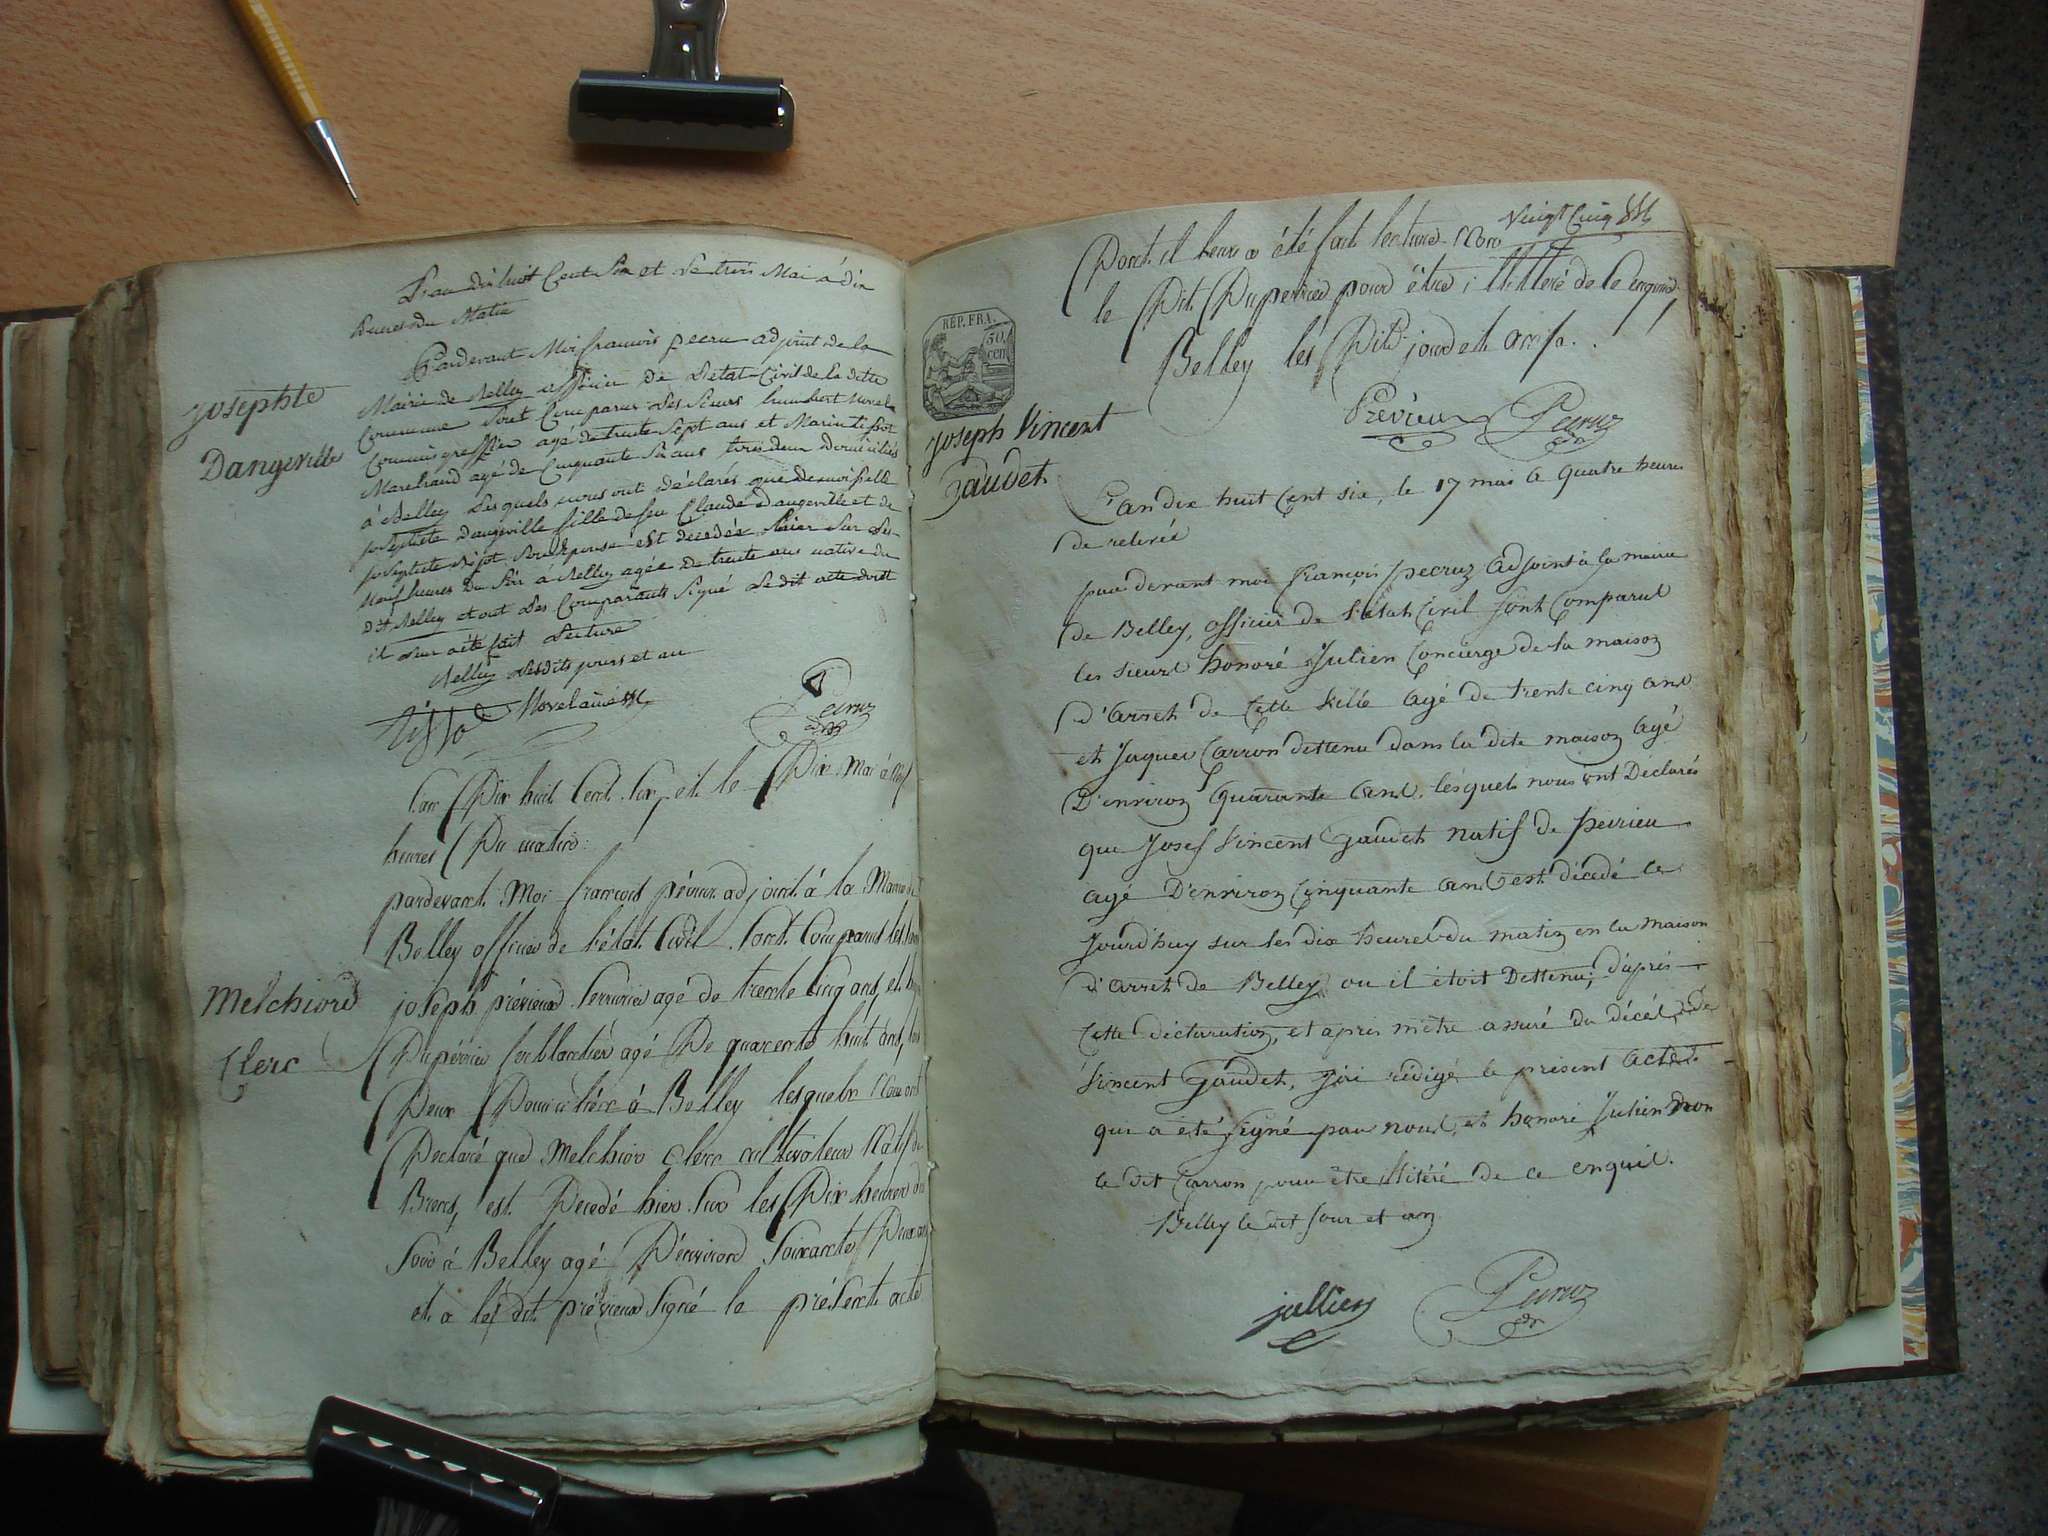 L'an dix huit Cent Six et Le trois Mai à dix
heures du Matin
Pardevant Moi françois pecruz adjoint de la
Josephte
Dangeville
Mairie de Belley officier de L'état Civil de la ditte
Commune Sont Comparus Les Sieurs humbert
Commis greffier agé de trente Sept ans et
Marchand agé de Cinquante Six ans tous deux Domiciliés
à Belley Lesquels nous ont déclarés que Demoiselle
josephte Dangeville fille de feu Claude Dangeville et de
josephte Son Epouse est décédée hier Sur Les
Neuf heures du Soir à Belley agée De trente ans native du
Dit Belley et ont Les Comparants Signé Le dit acte dont
il Leur a été fait Lecture
Belley Lesdits jours et an
Pecruz
L'an Dix huit Cent Six et le Dix Mai à
heures Du matin
pardevant Moi françois pécruz adjoint à la Mairie de
Belley officier de l'état Civil Sont Comparus les
Melchiord
Clerc
joseph prévieux Serrurier agé de trente Cinq ans, et
Dupérier ferblantier agé De quarente huit ans,
Deux Domiciliés à Belley lesquels Nous ont
Déclaré que Melchior Clerc cultivateur Natif de
Brens, est Décedé hier Sur les Dix heures du
Soir à Belley agé D'environ Soixante Deux ans
et a le dit prévieux Signé le présent acte
Vingt Cinq
Dont il leur a été fait lecture Non
le Dit Duperier pour être illitteré de Ce enquis
Belley les Dits jour et an
REP. FRA.
50
cen
Prévieux Pecruz
Joseph Vincent
Gaudet
L'an dix huit Cent six, le 17 mai a quatre heures
de relevée
par devant moi françois pecruz adjoint à la mairie
de Belley, officier de l'état Civil sont Comparus
les sieurs honoré Julien Concierge de la maison
d'arret de Cette ville agé de trente cinq ans
et Jaques Carron dettenu dans la dite maison agé
D'environ quarante ans, lesquels nous ont Déclarés
que Josef Vincent Gaudet natif de peirieu
agé D'environ Cinquante ans est décédé ce
Jourd'huy sur les dix heures du matin en la maison
d'arret de Belley ou il étoit Dettenu; d'après
Cette déclaration, et apres m'être assuré du décès, de
Vincent Gaudet, j'ai rédigé le présent acte
qui a été signé par nous, et honoré Julien non
le dit Carron pour être illitéré de ce enquis.
Belley le dit jour et an
jullien Pecruz